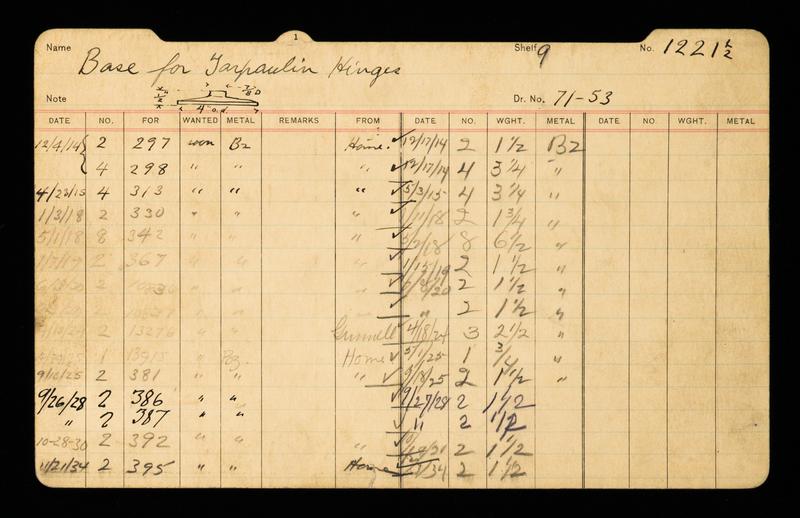 1
Name Base for Tarpaulin Hinges Shelf 9 No. 1221½
Note 4" o.d. Dr. No. 71-53
DATE NO. FOR WANTED METAL REMARKS FROM DATE NO. WGHT. METAL DATE NO. WGHT. METAL
12/4/14 2 297 Bz Home. ✓ 12/17/14 2 1½ Bz
4 298 " " " ✓ 12/17/14 4 3¼ "
4/23/15 4 313 " " " ✓ 5/3/15 4 3¼ "
1/3/18 2 330 " " " ✓ 1/11/18 2 1¾ "
5/1/18 8 342 " " " ✓ 8 6½ "
1/7/19 2 367 " " " ✓ 1/15/19 2 1½ "
2 " " " ✓ 2 1½ "
" " ✓ " 2 1½ "
13276 " " Gunnell ✓ 4/18/24 3 2½ "
1 13915 " Bz. Home ✓ 5/1/25 1 ¾ "
9/10/25 2 381 " " " ✓ 9/18/25 2 1½ "
9/26/28 2 386 " " ✓ 9/27/28 2 1½
" 2 387 " " ✓ " 2 1½
10-28-30 2 392 " " " ✓ 2 1½
11/21/34 2 395 " " Home ✓ 2 1½